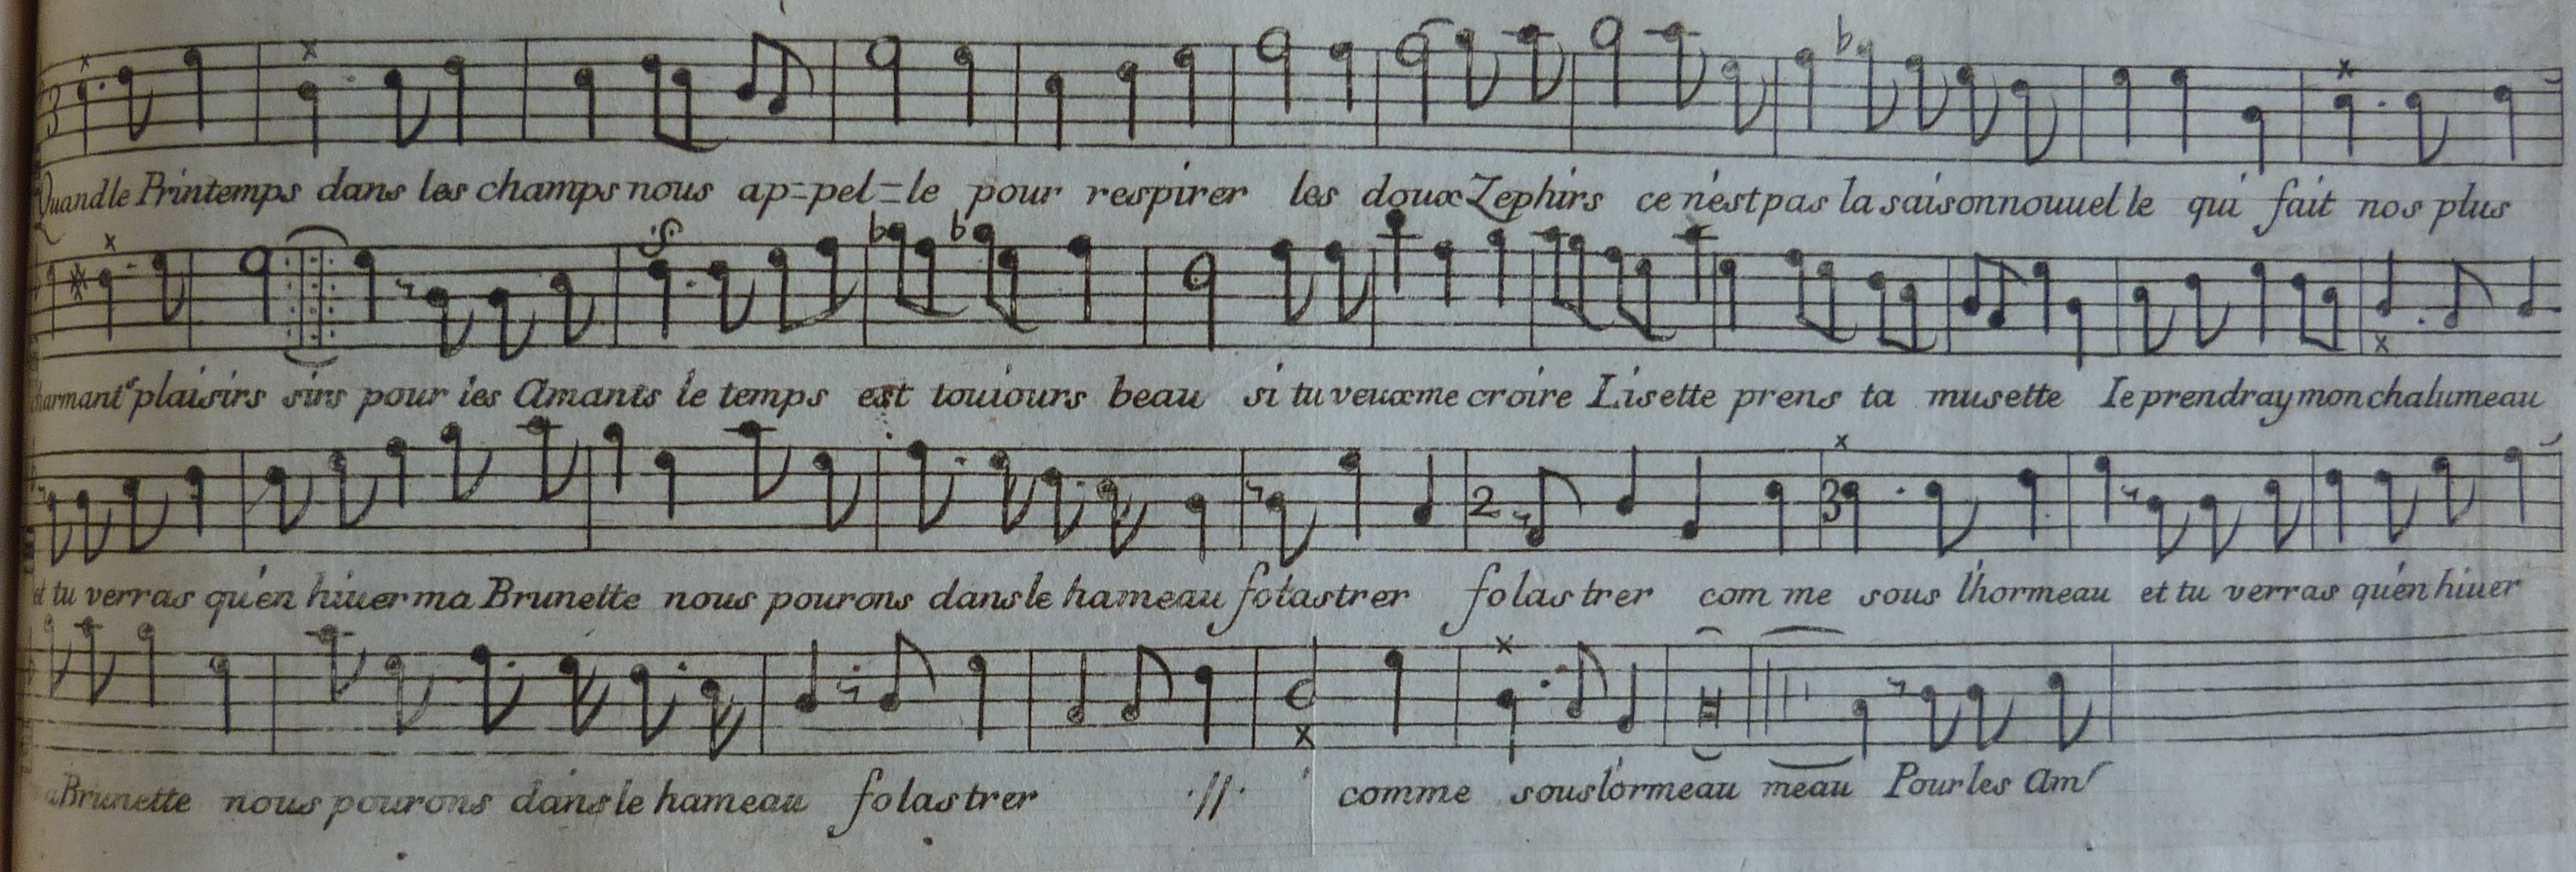 Quand le Printemps dans les champs nous ap=pel=le pour respirer les doux Zephirs ce n'est pas la saison nouuel le qui fait nos plus
charmants plaisirs sirs pour les Amants le temps est touiours beau si tu veux me croire Lisette prens ta musette Ie prendray mon chalumeau
et tu verras qu'en hiuer ma Brunette nous pourons dans le hameau folastrer folas trer com me sous l'hormeau et tu verras qu'en hiuer
a Brunette nous pourons dans le hameau folas trer .//. comme sous l'ormeau meau Pour les Am